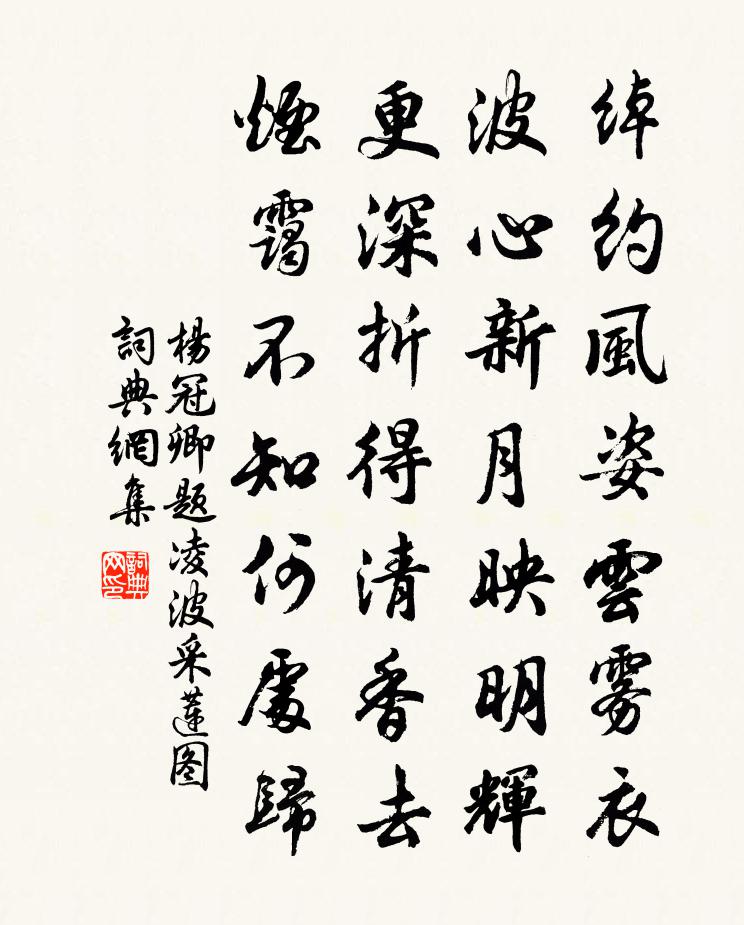 綽約風姿雲雾衣
波心新月映明輝
更深折得清香去
煙靄不知何處歸
楊冠卿題凌波采蓮图
詞典網集
詞典网印